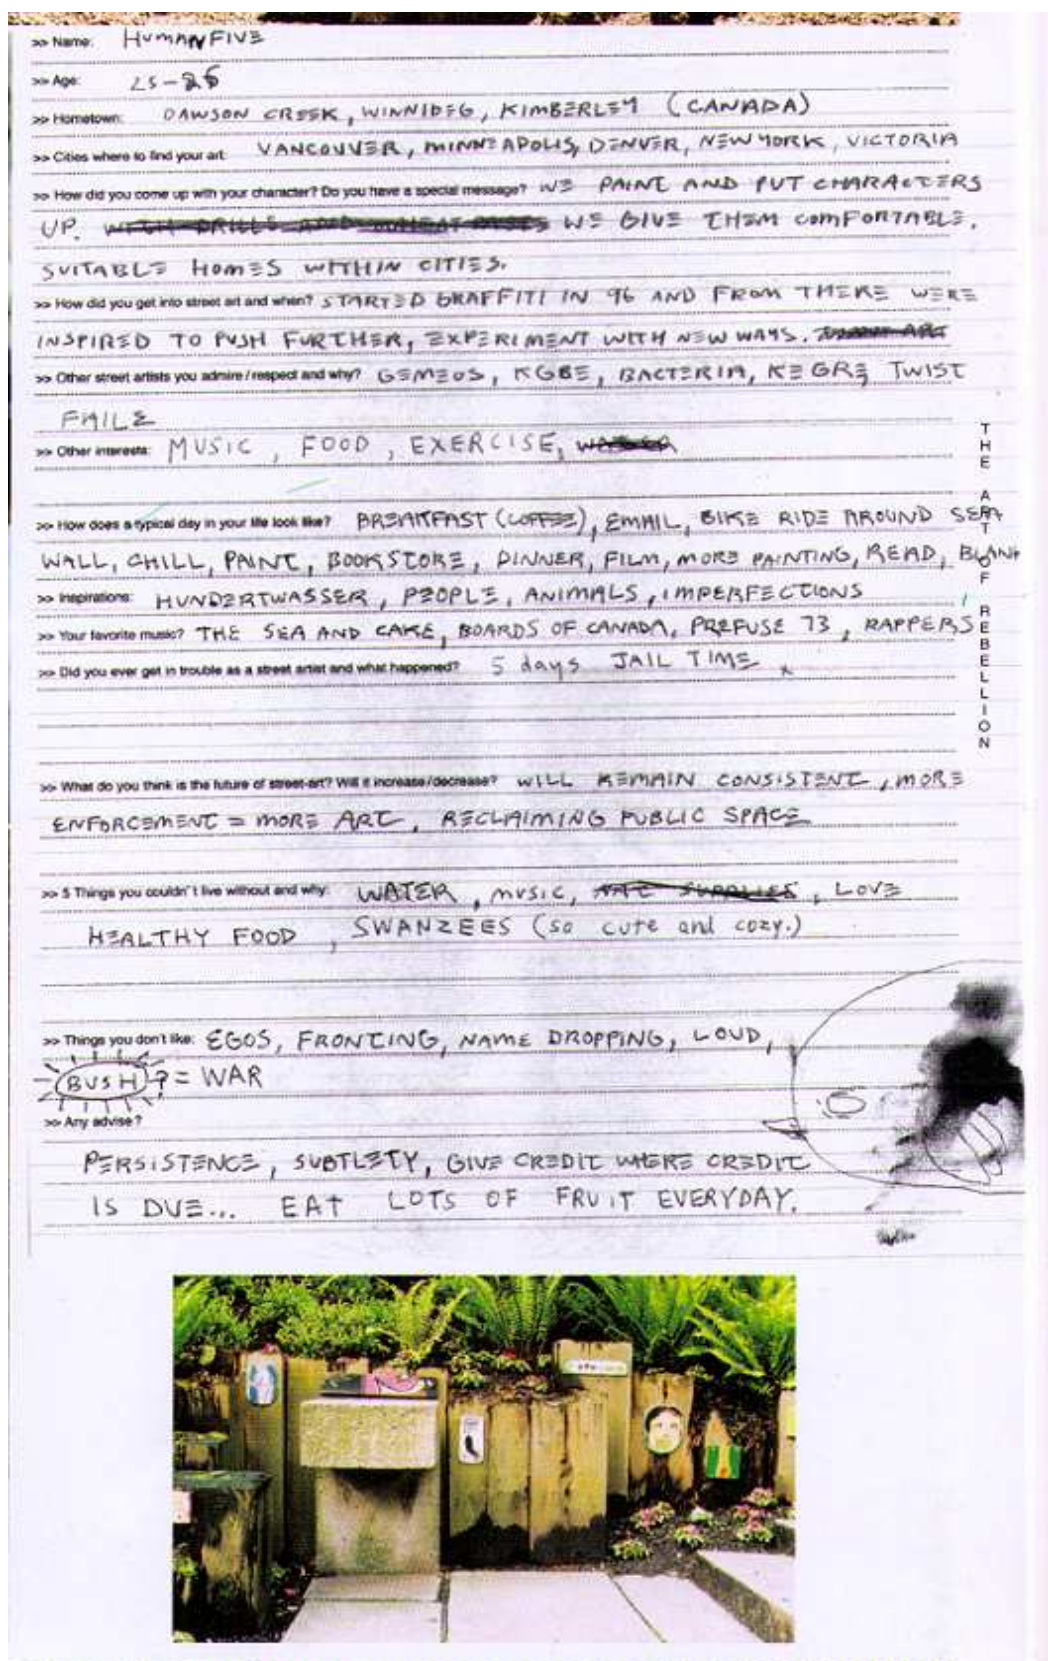 >> Name: HUMANFIVE
>> Age: 25-26
>> Hometown: DAWSON CREEK, WINNIPEG, KIMBERLEY (CANADA)
>> Cities where to find your art: VANCOUVER, MINNEAPOLIS, DENVER, NEW YORK, VICTORIA
>> How did you come up with your character? Do you have a special message? WE PAINT AND PUT CHARACTERS
UP. WE GIVE THEM COMFORTABLE,
SUITABLE HOMES WITHIN CITIES.
>> How did you get into street art and when? STARTED GRAFFITI IN 96 AND FROM THERE WERE
INSPIRED TO PUSH FURTHER, EXPERIMENT WITH NEW WAYS.
>> Other street artists you admire/respect and why? GEMEOS, KGBE, BACTERIA, KEGR, TWIST
FAILE
>> Other interests: MUSIC, FOOD, EXERCISE,
>> How does a typical day in your life look like? BREAKFAST (COFFEE), EMAIL, BIKE RIDE AROUND SEA
WALL, CHILL, PAINT, BOOKSTORE, DINNER, FILM, MORE PAINTING, READ, BLANK
>> Inspirations: HUNDERTWASSER, PEOPLE, ANIMALS, IMPERFECTIONS
>> Your favorite music? THE SEA AND CAKE, BOARDS OF CANADA, PREFUSE 73, RAPPERS
>> Did you ever get in trouble as a street artist and what happened? 5 days JAIL TIME
>> What do you think is the future of street-art? Will it increase/decrease? WILL REMAIN CONSISTENT, MORE
ENFORCEMENT = MORE ART, RECLAIMING PUBLIC SPACE
>> 5 Things you couldn't live without and why: WATER, MUSIC, ART SUPPLIES, LOVE
HEALTHY FOOD, SWANZEES (so cute and cozy.)
>> Things you don't like: EGOS, FRONTING, NAME DROPPING, LOUD,
BUSH ? = WAR
>> Any advise?
PERSISTENCE, SUBTLETY, GIVE CREDIT WHERE CREDIT
IS DUE... EAT LOTS OF FRUIT EVERYDAY.
THE ART OF REBELLION